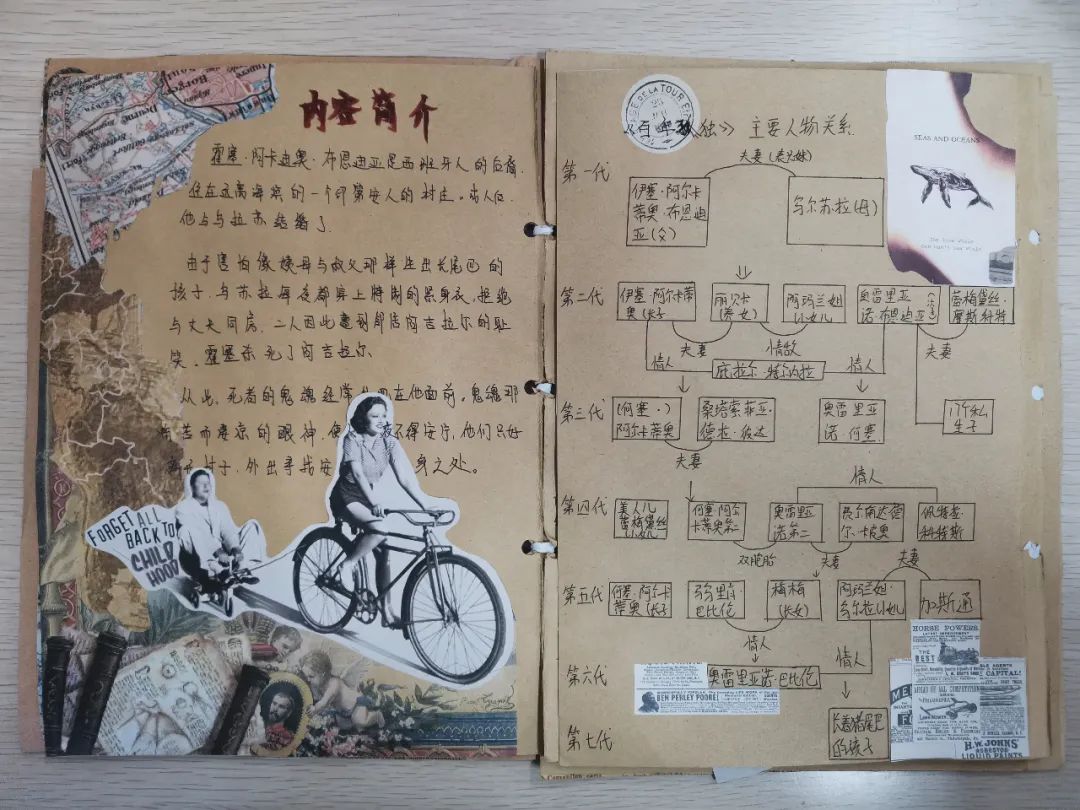 内容简介
霍塞·阿卡迪奥·布恩迪亚是西班牙人的后裔,
住在远离海滨的一个印第安人的村庄。
他与乌拉苏结婚了.
由于害怕像姨母与叔父那样生出长尾巴的
孩子.乌苏拉每夜都穿上特制的紧身衣,拒绝
与丈夫同房.二人因此遭到邻居阿吉拉尔的耻
笑.霍塞杀死了阿吉拉尔.
从此,死者的鬼魂经常出现在他面前.鬼魂那
痛苦而凄凉的眼神,使 夜不得安宁,他们只好
村子,外出寻找安 身之处。
FORGET ALL
BACK TO
CHILD
HOOD
PAGE DE LA TOUR
《百年孤独》 主要人物关系
SEAS AND OCEANS
第一代
夫妻(表兄妹)
伊塞·阿尔卡
蒂奥·布恩迪
亚(父)
乌尔苏拉(母)
第二代
伊塞·阿尔卡蒂
奥(长子)
丽贝卡
(养女)
阿玛兰妲
小女儿
奥雷里亚
诺·布恩迪亚
(次子)
蕾梅黛丝·
摩斯科特
夫妻
情敌
情人
庇拉尔·特尔内拉
情人
夫妻
第三代
(何塞·)
阿尔卡蒂奥
桑塔索菲亚·
德拉·彼达
奥雷里亚
诺·何塞
17个私
生子
夫妻
情人
第四代
美人儿
蕾梅黛丝
小女儿
何塞·阿尔
卡蒂奥第二
奥雷里亚
诺第二
费尔南达德
尔·卡皮奥
佩特拉
科特斯
双胞胎
夫妻
夫妻
第五代
何塞·阿尔卡
蒂奥(长子)
弥里肖·
巴比伦
梅梅
(长女)
阿玛兰妲·
乌尔拉小女儿
加斯通
情人
情人
第六代
奥雷里亚诺·巴比伦
BEN PERLEY POORE!
HORSE POWERS
THE
BEST
CAPITAL!
H.W. JOHNS'
ASBESTOS
LIQUID PAINTS
第七代
长着猪尾巴
的孩子